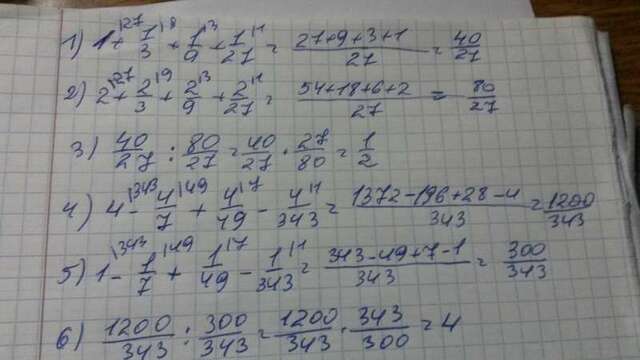 1) 1|27 + 1/3|9 + 1/9|3 + 1/27|1 = (27+9+3+1)/27 = 40/27
2) 2|27 + 2/3|9 + 2/9|3 + 2/27|1 = (54+18+6+2)/27 = 80/27
3) 40/27 : 80/27 = 40/27 · 27/80 = 1/2
4) 4|343 - 4/7|49 + 4/49|7 - 4/343|1 = (1372-196+28-4)/343 = 1200/343
5) 1|343 - 1/7|49 + 1/49|7 - 1/343|1 = (343-49+7-1)/343 = 300/343
6) 1200/343 : 300/343 = 1200/343 · 343/300 = 4